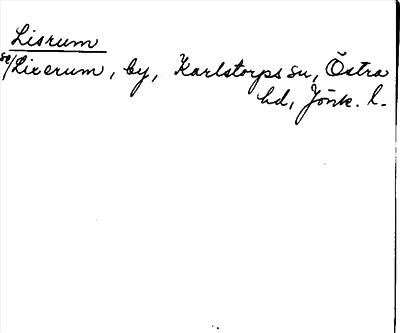 Lisrum
se/Lixerum, by, Karlstorps sn, Östra
hd, Jönk. l.